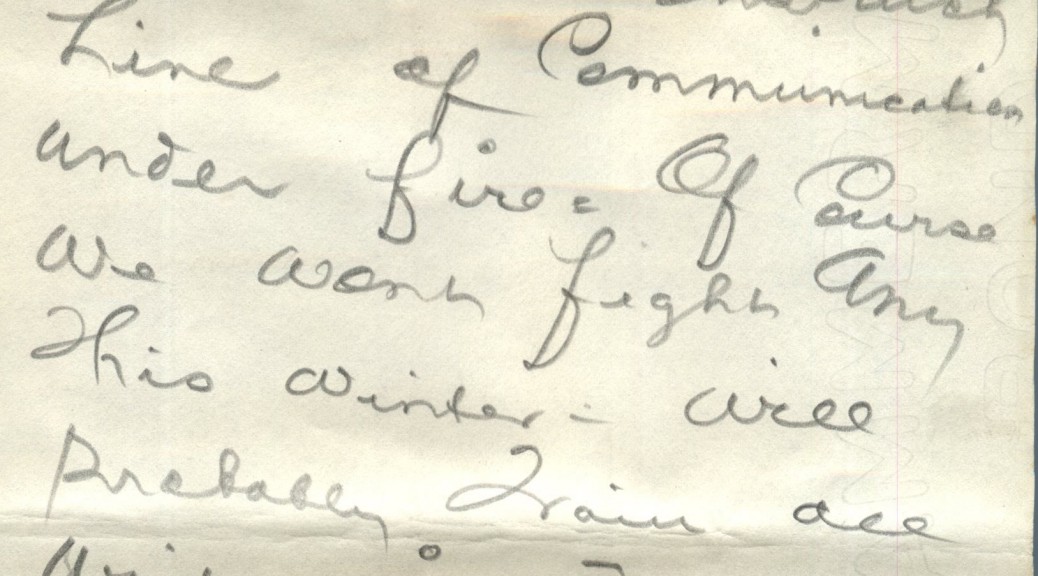 Line of Communication
under fire = Of Course
We wont fight Any
This winter - will
Probably Train all